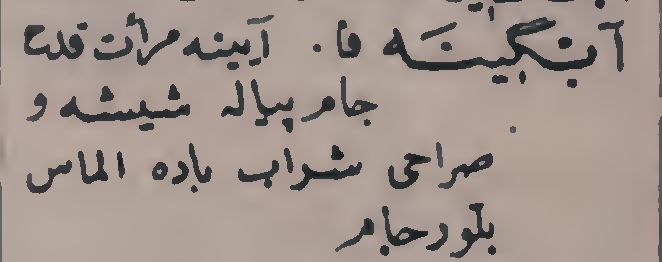 آبگینَه فا. آیینه مرأت قدح
جام پیاله شیشه و
صراحی شراب باده الماس
بلور جام